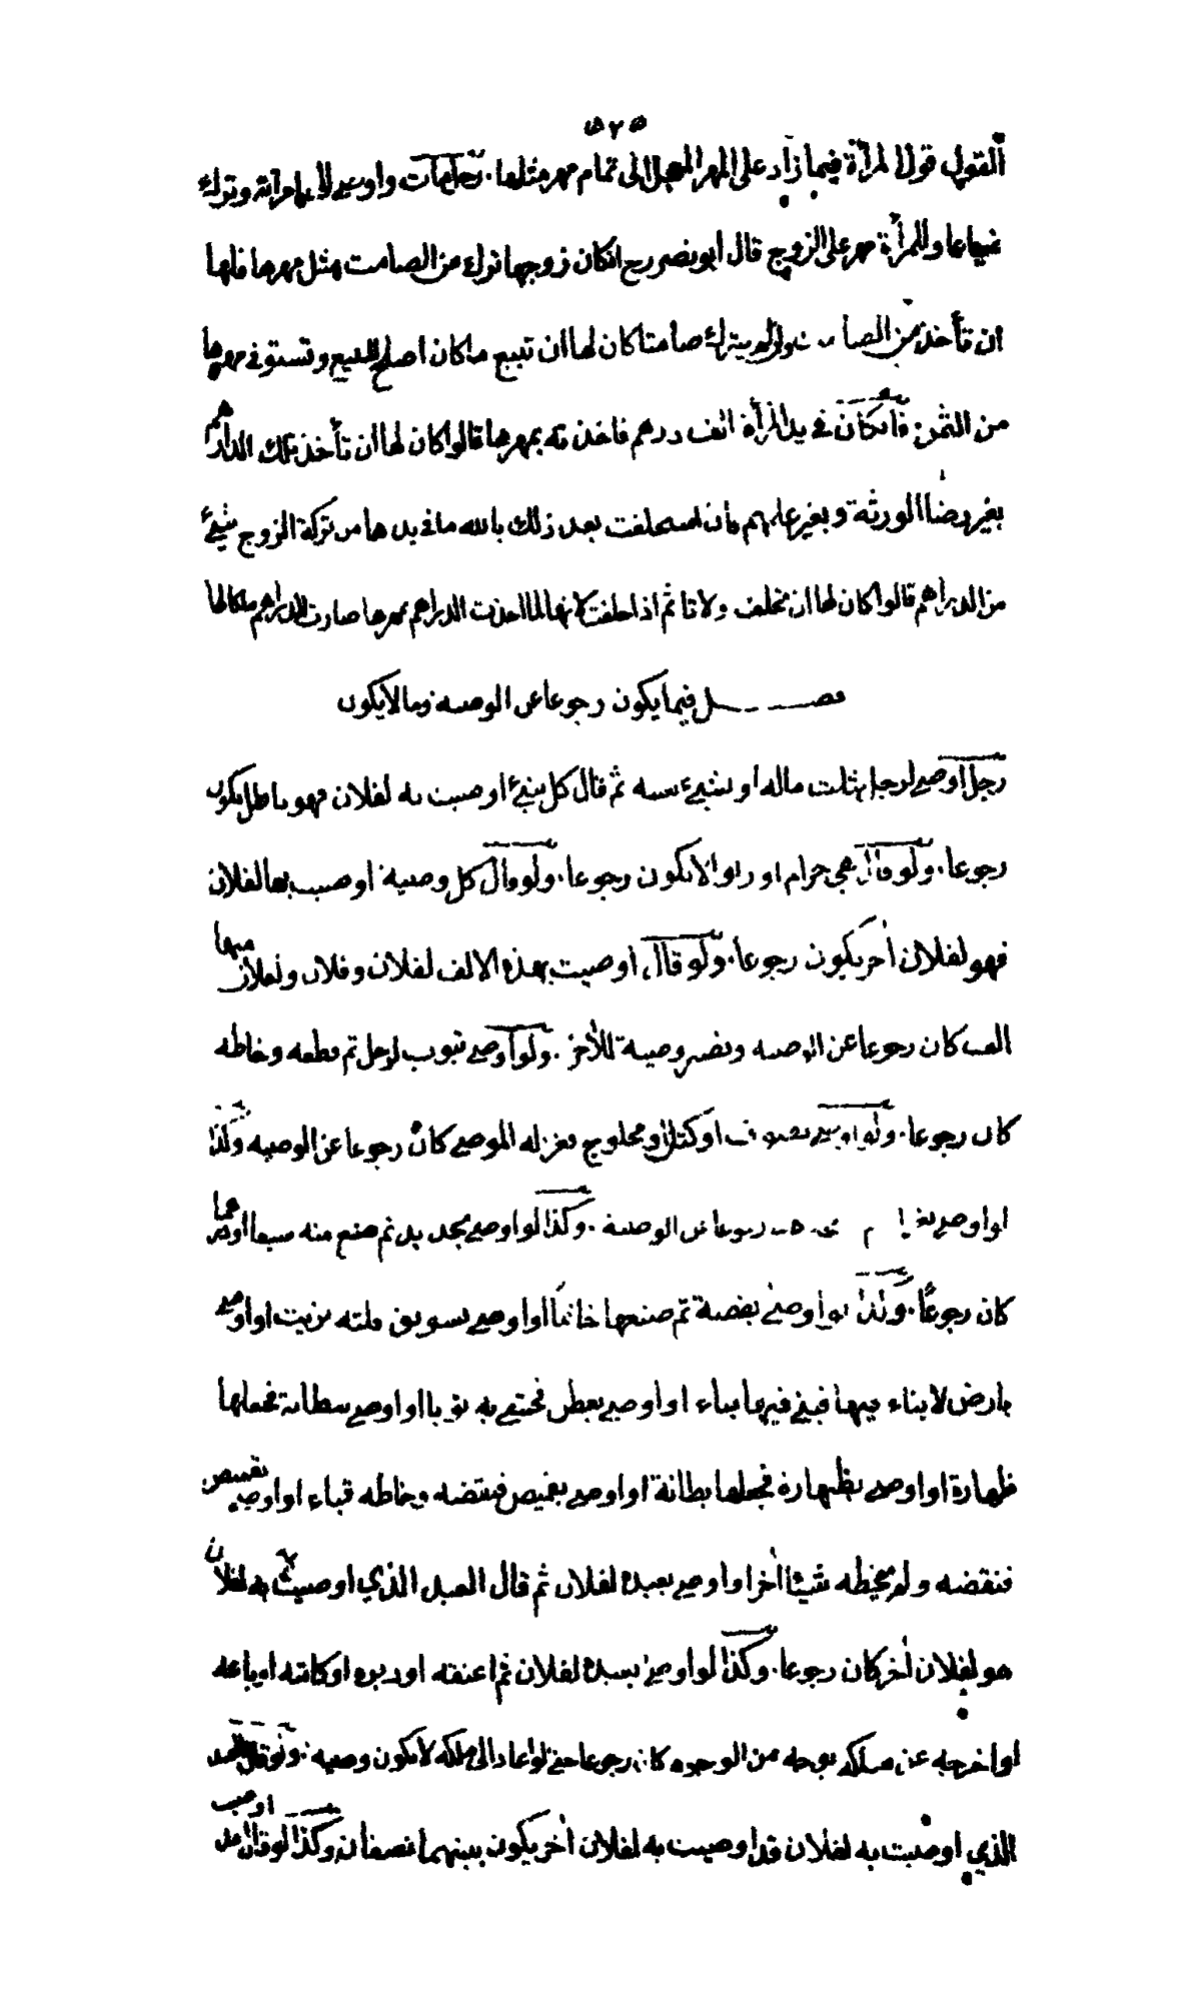 ٥٢٥
القول قول المرأة فيما زاد على المهر المعجل الى تمام مهر مثلها. رجل مات واوصى الى امرأته وترك
ضياعا وللمرأة مهر على الزوج قال ابو نصر رح انكان زوجها ترك من الصامت مثل مهرها فلها
ان تأخذ من الصا ولو لم يترك صامتا كان لها ان تبيع ما كان اصلح للبيع وتستوفي مهرها
من الثمن. فان كان في يد المرأة الف درهم فاخذته بمهرها قالوا كان لها ان تأخذ تلك الدراهم
بغير رضا الورثة وبغير علمهم فان استحلفت بعد ذلك بالله ما في يدها من تركة الزوج شيئ
من الدراهم قالوا كان لها ان تحلف ولا تأثم اذا حلفت لانها لما اخذت الدراهم بمهرها صارت الدراهم ملكا لها
فصـــل فيما يكون رجوعا عن الوصية وما لا يكون
رجل اوصى لرجل بثلث ماله او بشيئ سمه ثم قال كل شيئ اوصيت به لفلان فهو باطل يكون
رجوعا. ولو قال هي حرام او ربوا لا يكون رجوعا. ولو قال كل وصية اوصيت بها لفلان
فهو لفلان اخر يكون رجوعا. ولو قال اوصيت بهذه الالف لفلان وفلان ولفلان منها
الف كان رجوعا عن الوصية وتصير وصية للآخر. ولو اوصى بثوب لرجل ثم قطعه وخاطه
كان رجوعا. ولو اوصى بصوف او كتان او محلوج فغزله الموصي كان رجوعا عن الوصية وكذا
لو اوصى رجوعا عن الوصية. وكذا لو اوصى بحديد ثم صنع منه سيفا او درهما
كان رجوعا. وكذا لو اوصى بفضة ثم صنعها خاتما او اوصى بسويق فلته بزيت او اوصى
بارض لا بناء فيها فبنى فيها بناء او اوصى بقطن فحشى به ثوبا او اوصى ببطانة فجعلها
ظهارة او اوصى بظهارة فجعلها بطانة او اوصى بقميص فنقضه وخاطه قباء او اوصى بقميص
فنقضه ولم يخطه شيئا اخر او اوصى بعبده لفلان ثم قال العبد الذي اوصيت به لفلان
هو لفلان اخر كان رجوعا. وكذا لو اوصى بعبده لفلان ثم اعتقه او دبره او كاتبه او باعه
او اخرجه عن ملكه بوجه من الوجوه كان رجوعا حتى لو عاد الى ملكه لا يكون وصية. ولو قال العبد
الذي اوصيت به لفلان قد اوصيت به لفلان اخر يكون بينهما نصفان وكذا لو قال اوصيت